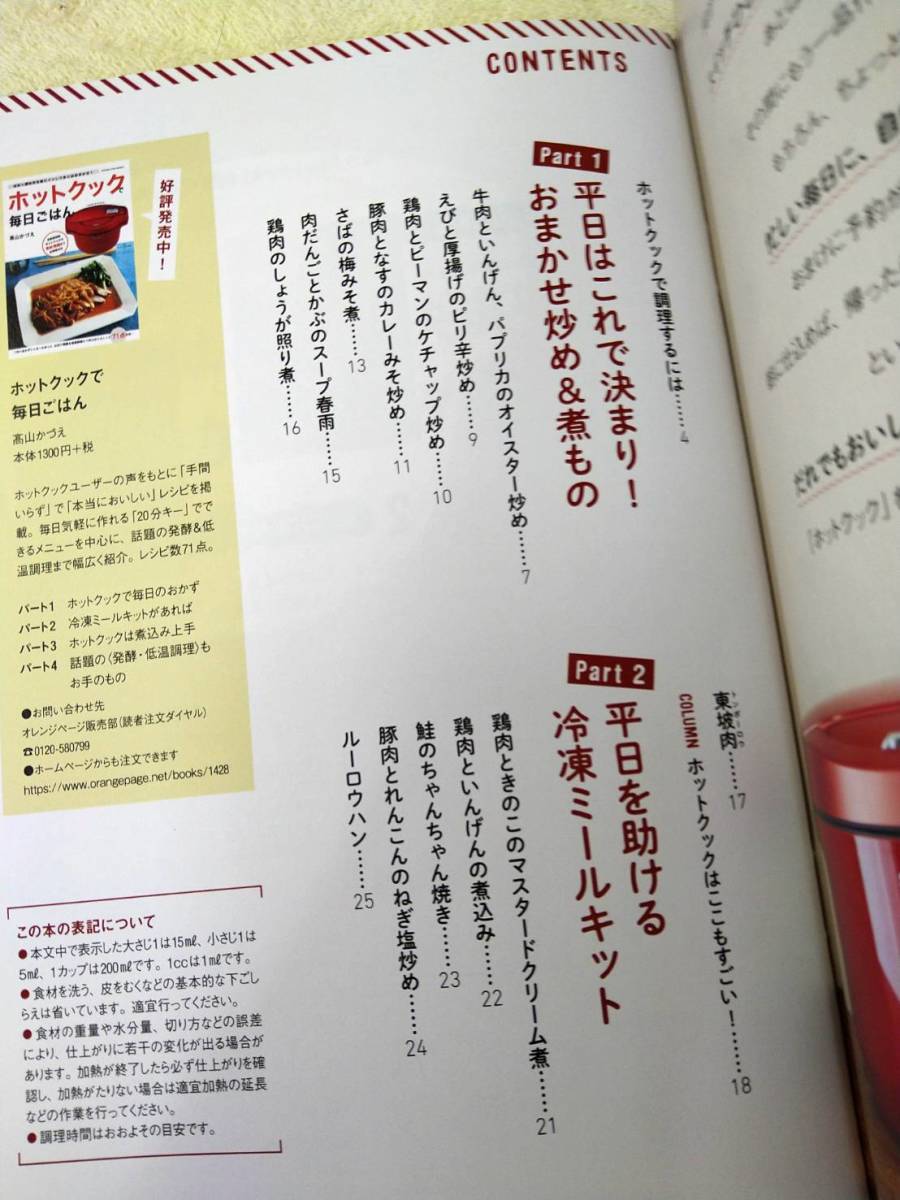 CONTENTS
ホットクックで調理するには……4
Part 1
平日はこれで決まり！
おまかせ炒め&煮もの
牛肉といんげん、パプリカのオイスター炒め……7
えびと厚揚げのピリ辛炒め……9
鶏肉とピーマンのケチャップ炒め……10
豚肉となすのカレーみそ炒め……11
さばの梅みそ煮……13
肉だんごとかぶのスープ春雨……15
鶏肉のしょうが照り煮……16
東坡肉……17
トンポーロウ
COLUMN ホットクックはここもすごい！……18
Part 2
平日を助ける
冷凍ミールキット
鶏肉ときのこのマスタードクリーム煮……21
鶏肉といんげんの煮込み……22
鮭のちゃんちゃん焼き……23
豚肉とれんこんのねぎ塩炒め……24
ルーロウハン……25
好評発売中！
ホットクックで
毎日ごはん
髙山かづえ
ホットクックで
毎日ごはん
髙山かづえ
本体1300円＋税
ホットクックユーザーの声をもとに「手間
いらず」で「本当においしい」レシピを掲
載。毎日気軽に作れる「20分キー」でで
きるメニューを中心に、話題の発酵&低
温調理まで幅広く紹介。レシピ数71点。
パート1 ホットクックで毎日のおかず
パート2 冷凍ミールキットがあれば
パート3 ホットクックは煮込み上手
パート4 話題の〈発酵・低温調理〉も
お手のもの
●お問い合わせ先
オレンジページ販売部（読者注文ダイヤル）
☎0120-580799
●ホームページからも注文できます
https://www.orangepage.net/books/1428
この本の表記について
●本文中で表示した大さじ1は15㎖、小さじ1は
5㎖、1カップは200㎖です。1ccは1㎖です。
●食材を洗う、皮をむくなどの基本的な下ごし
らえは省いています。適宜行ってください。
●食材の重量や水分量、切り方などの誤差
により、仕上がりに若干の変化が出る場合が
あります。加熱が終了したら必ず仕上がりを確
認し、加熱がたりない場合は適宜加熱の延長
などの作業を行ってください。
●調理時間はおおよその目安です。
忙しい毎日に、自
おまけに予約が
帰った
とい
だれでもおいし
「ホットクック」を